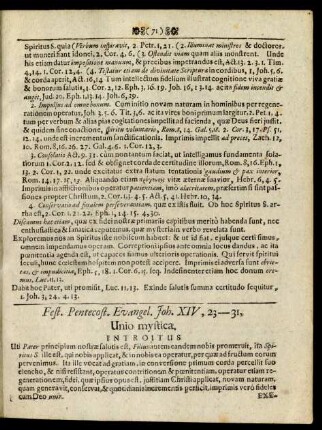 ❧( 71 )❧
Spiritus S. quia (1. Verbum inspiravit, 2. Petr. 1, 21. (2. Illuminat ministros & doctores,
ut muneri fiant idonei, 2. Cor. 4, 6. (3. Ostendit viam quam alia monstrent. Unde
his etiam datur impositione manuum, & precibus impetrandus est, Act. 13, 2. 3. 1. Tim.
4, 14. 1. Cor. 12, 4. (4. Testatur etiam de divinitate Scripturæ in cordibus, 1. Joh. 5, 6.
& corda aperit, Act. 16, 14. Tum intellectum fidelium illustrat cognitione viva gratiæ
& bonorum salutis, 1. Cor. 2, 12. Eph. 3, 16. 19. Joh. 16, 13. 14. ac in fidem incendit &
auget, Jud. 20. Eph. 1, 13. 14. Joh. 6, 29.
2. Impulsor ad omne bonum. Cum initio novam naturam in hominibus per regene-
rationem operatur, Joh. 3, 5. 6. Tit. 3, 6. ac ita vires boni primum largitur. 2. Pet. 1, 4.
tum per verbum & alias pias cogitationes impellit ad facienda, quæ Deus fieri jussit,
& quidem sine coactione, spiritu voluntario, Rom. 8, 14. Gal. 5, 18. 2. Cor. 3, 17. Ps. 51,
12. 14. unde est incrementum sanctificationis. Imprimis impellit ad preces, Zach. 12,
10. Rom. 8, 16. 26. 27. Gal. 4, 6. 1. Cor. 12, 3.
3. Consolatio Act. 9, 31. cum non tantum faciat, ut intelligamus fundamenta conso-
lationum 1. Cor. 2, 12. sed & obsignet corda de certitudine illorum, Rom. 8, 16. Eph. 1,
13. 2. Cor. 1, 22. unde excitatur extra statum tentationis gaudium & pax interior,
Rom. 14, 17. 15, 13. Aliquando etiam vitæ æternæ favorisque, Hebr. 6, 4. 5.
Imprimis in afflictionibus operatur patientiam, imò alacritatem, præsertim si sint pas-
siones propter Christum, 2. Cor. 12, 4. 5. Act. 5, 41. Hebr. 10, 34.
4. Conservationis ad finalem perseverantiam, quæ ex istis fluit. Ob hoc Spiritus S. ar-
rha est, 2. Cor. 1, 22. Eph. 1, 14. 15. 4, 30.
Discamus hæc etiam, quæ ex fidei nostræ primariis capitibus meritò habenda sunt, nec
enthusiastica & fanatica reputemus, quæ mysteria in verbo revelata sunt.
Exploremus nos an Spiritus iste nobiscum habitet: & ut id fiat, ejusque certi simus,
omnem impendamus operam. Correptioni ipsius ante omnia locus dandus, ac ita
punitentia agenda est, hæc enim janua ulterioris operationis. Qui servit spiritui
secuti, hunc coelestem hospitem non potest accipere. Imprimis ei adversa sunt ebrie-
tas, & impudicitia, Eph. 5, 18. 1. Cor. 6, 15. seq. Indesinenter etiam hoc donum oremus,
Luc. 11, 13.
Dabit hoc Pater, uti promisit, Luc. 11, 13. Exinde salutis summa certitudo sequitur,
1. Joh. 3, 24. 4, 13.
Fest. Pentecost. Evangel. Joh. XIV, 23–31.
Unio mystica,
INTROITUS
Uti Pater principium nostræ salutis est, Filius autem eandem nobis promeruit, ita Spi-
ritus S. ille est, qui nobis applicat, & in nobis ea operatur, per quæ ad fructum eorum
pervenimus. Hic vocat ad gratiam, in conversione primum corda percellit sua
elencho, & nisi resistant, operatur contritionem & pœnitentiam, operatur etiam re-
generationem, fidei, quæ ipsius opus est, jostitiam Christi applicat, novam naturam,
quam generavit, conservat, & quotidianis incrementis perficit, imprimis verò fideles
cum Deo unit.
EXE-